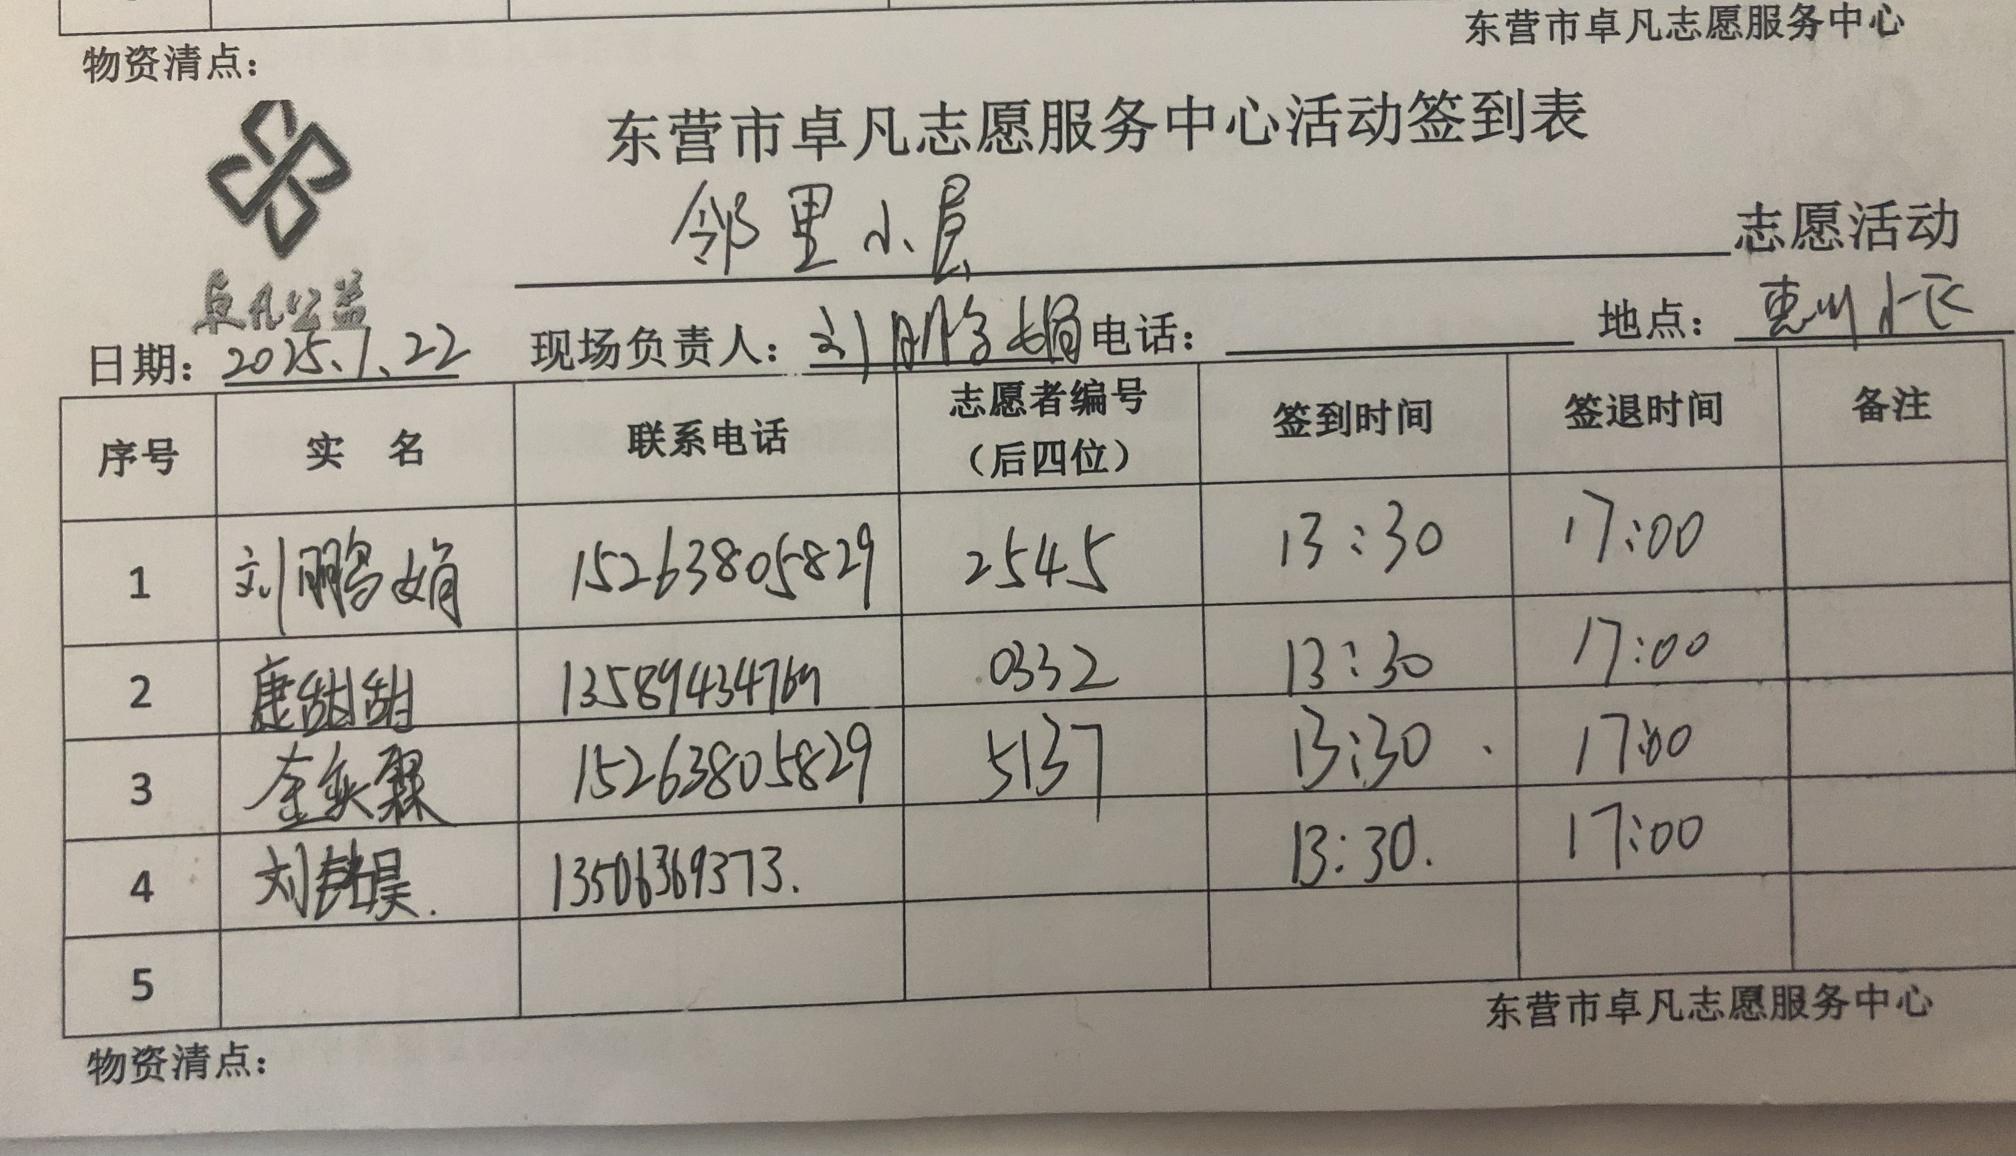 东营市卓凡志愿服务中心
物资清点：
东营市卓凡志愿服务中心活动签到表
卓凡公益
邻里小屋 志愿活动
日期：2025.1.22 现场负责人：刘鹏娟 电话： 地点：惠州小区
序号 实 名 联系电话 志愿者编号（后四位） 签到时间 签退时间 备注
1 刘鹏娟 15263805829 2545 13:30 17:00
2 唐甜甜 13589434769 0332 13:30 17:00
3 15263805829 5137 13:30 17:00
4 刘 昊. 13506369373. 13:30. 17:00
5
东营市卓凡志愿服务中心
物资清点：